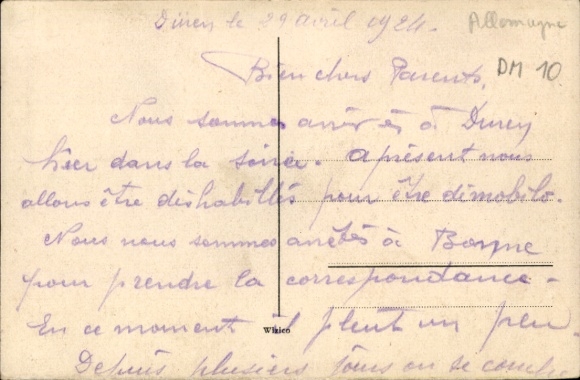 Düren le 29 avril 1924.
Allemagne
DM 10
Bien chers Parents,
Nous sommes arrivés à Duren
hier dans la soirée. aprésent nous
allons être déshabillés pour être démobilo.
Nous nous sommes arrêtés à
pour prendre la correspondance -
En ce moment il pleut un peu
Wizico
Depuis plusieurs jours on se